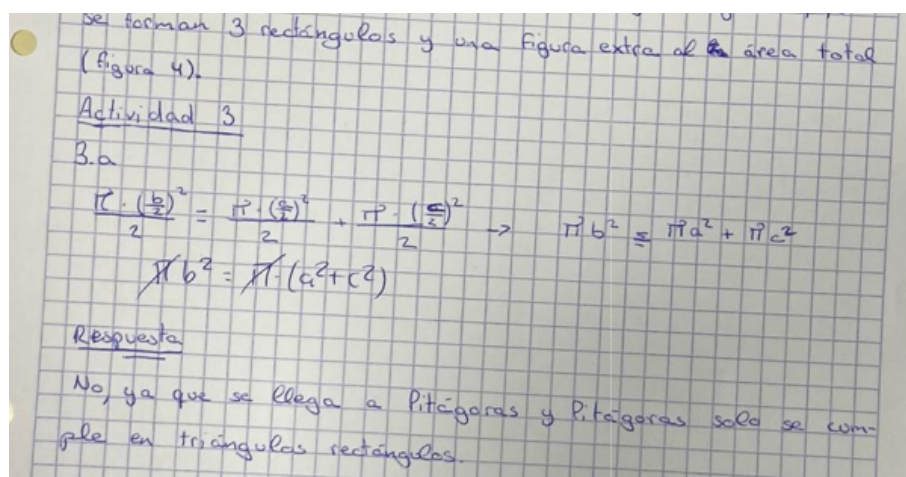 se forman 3 rectángulos y una figura extra al área total
(figura 4).
Actividad 3
3.a
π · (b/2)² / 2 = π · (a/2)² / 2 + π · (c/2)² / 2 → π b² = π a² + π c²
π b² = π · (a² + c²)
Respuesta
No, ya que se llega a Pitágoras y Pitágoras solo se com-
ple en triángulos rectángulos.